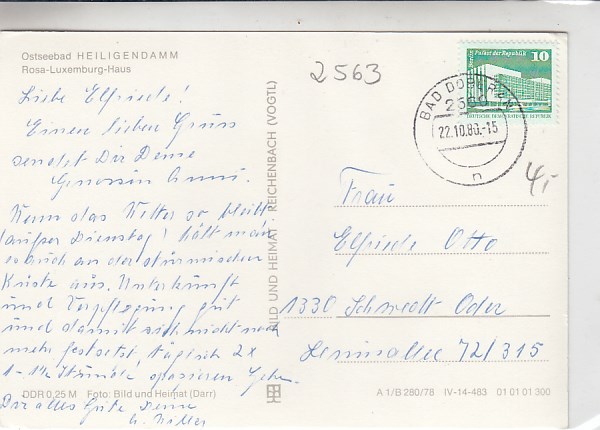 Ostseebad HEILIGENDAMM
Rosa-Luxemburg-Haus
2563
Palast der Republik
10
DEUTSCHE DEMOKRATISCHE REPUBLIK
BAD DOBERAN
2560
22.10.80.-15
n
4,-
Liebe Elfriede!
Einen lieben Gruss
sendet Dir Deine
Genossin
Wenn das Wetter so bleibt
Dienstag! hält man
es auch an der stürmischen
Küste aus. Unterkunft
und Verpflegung gut
und damit sich nicht noch
mehr festsetzt, täglich 2x
1-1½ Stunde spazieren gehn.
Dir alles Gute Deine
BILD UND HEIMAT REICHENBACH (VOGTL)
Frau
Elfriede Otto
1330 Schwedt Oder
Leninallee 72/315
DDR 0,25 M Foto: Bild und Heimat (Darr)
A 1/B 280/78 IV-14-483 01 01 01 300